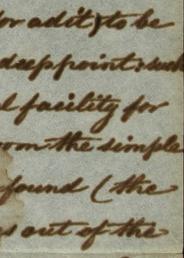 for adit) to be
deep point: such
facility for
from the simple
found (the
out of the